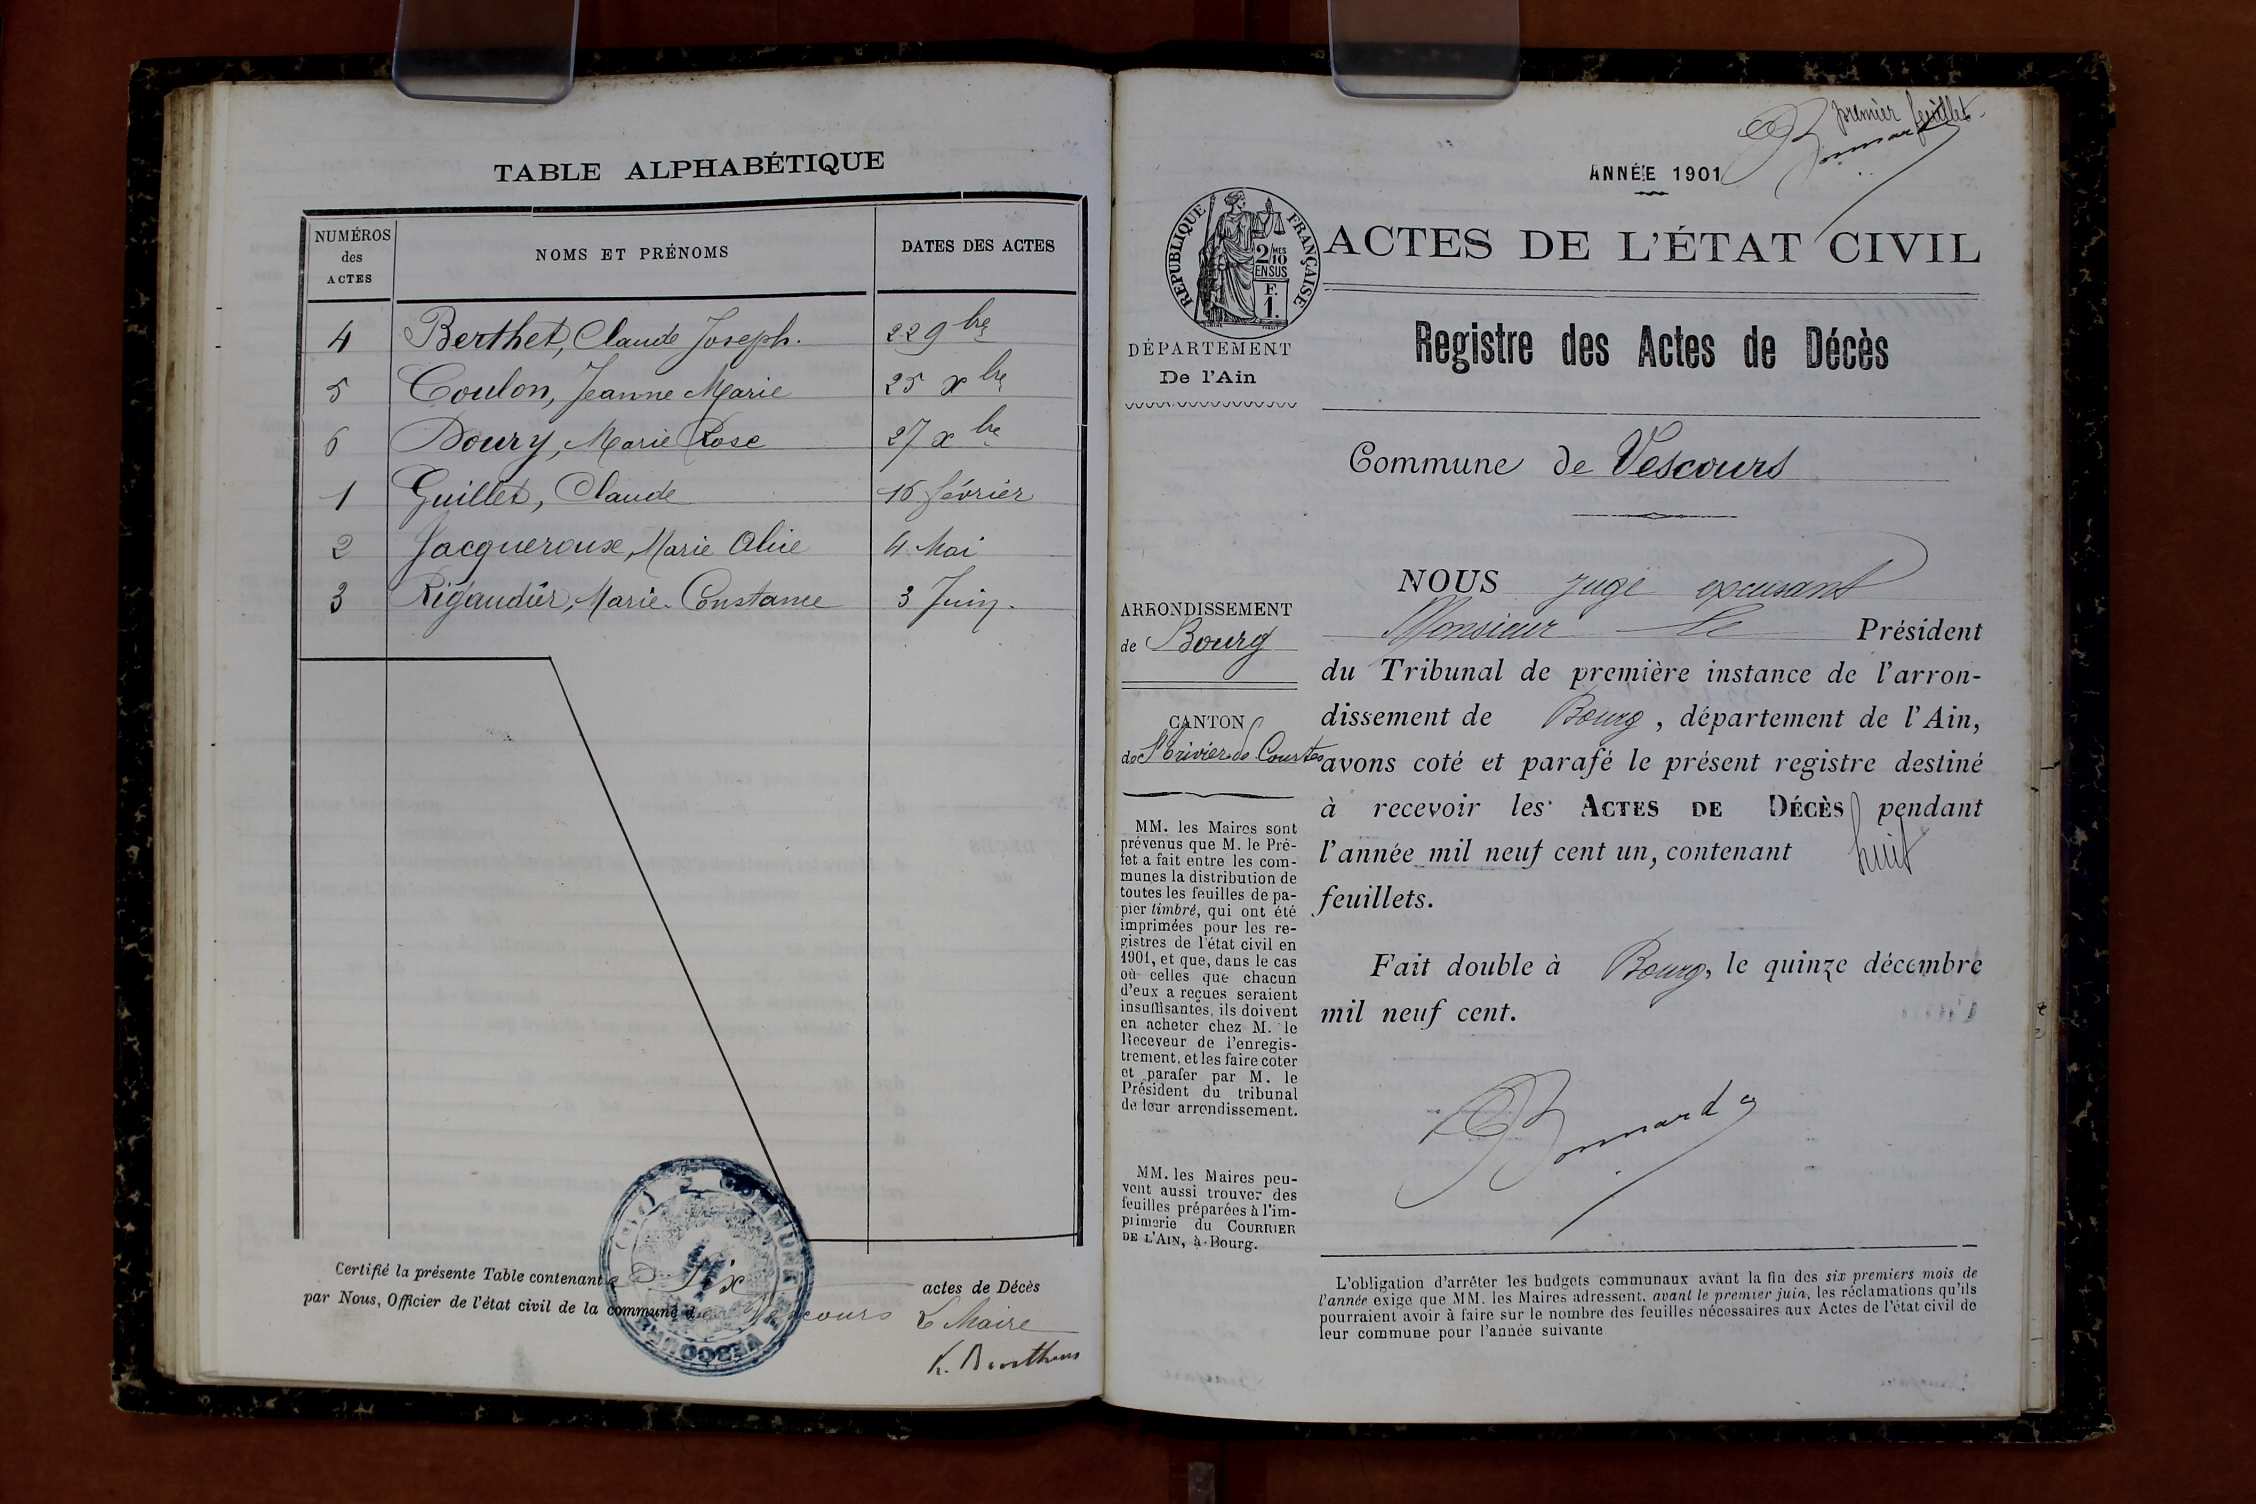 TABLE ALPHABÉTIQUE
NUMÉROS
des
ACTES
NOMS ET PRÉNOMS
DATES DES ACTES
4 Berthet, Claude Joseph. 22 9bre
5 Coulon, Jeanne Marie 25 xbre
6 Doury, Marie Rose 27 xbre
1 Guillet, Claude 16 février
2 Jacqueroux, Marie Alice 4 Mai
3 Rigaudier, Marie-Constance 3 Juin.
Certifié la présente Table contenant Six actes de Décès
par Nous, Officier de l'état civil de la commune de Vescours Le Maire
premier feuillet.
ANNÉE 1901
RÉPUBLIQUE FRANÇAISE
2/10 MES
EN SUS
F.
1.
ACTES DE L'ÉTAT CIVIL
DÉPARTEMENT
De l'Ain
Registre des Actes de Décès
Commune de Vescours
ARRONDISSEMENT
de Bourg
CANTON
de St Trivier de Courtes
MM. les Maires sont
prévenus que M. le Pré-
fet a fait entre les com-
munes la distribution de
toutes les feuilles de pa-
pier timbré, qui ont été
imprimées pour les re-
gistres de l'état civil en
1901, et que, dans le cas
où celles que chacun
d'eux a reçues seraient
insuffisantes, ils doivent
en acheter chez M. le
Receveur de l'enregis-
trement, et les faire coter
et parafer par M. le
Président du tribunal
de leur arrondissement.
MM. les Maires peu-
vent aussi trouver des
feuilles préparées à l'im-
primerie du COURRIER
DE L'AIN, à Bourg.
NOUS juge excusant
Monsieur le Président
du Tribunal de première instance de l'arron-
dissement de Bourg, département de l'Ain,
avons coté et parafé le présent registre destiné
à recevoir les ACTES DE DÉCÈS pendant
l'année mil neuf cent un, contenant huit
feuillets.
Fait double à Bourg, le quinze décembre
mil neuf cent.
L'obligation d'arrêter les budgets communaux avant la fin des six premiers mois de
l'année exige que MM. les Maires adressent, avant le premier juin, les réclamations qu'ils
pourraient avoir à faire sur le nombre des feuilles nécessaires aux Actes de l'état civil de
leur commune pour l'année suivante